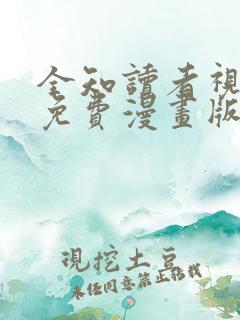 全知讀者視
免費漫畫版
現挖土豆
未任同意禁止转载